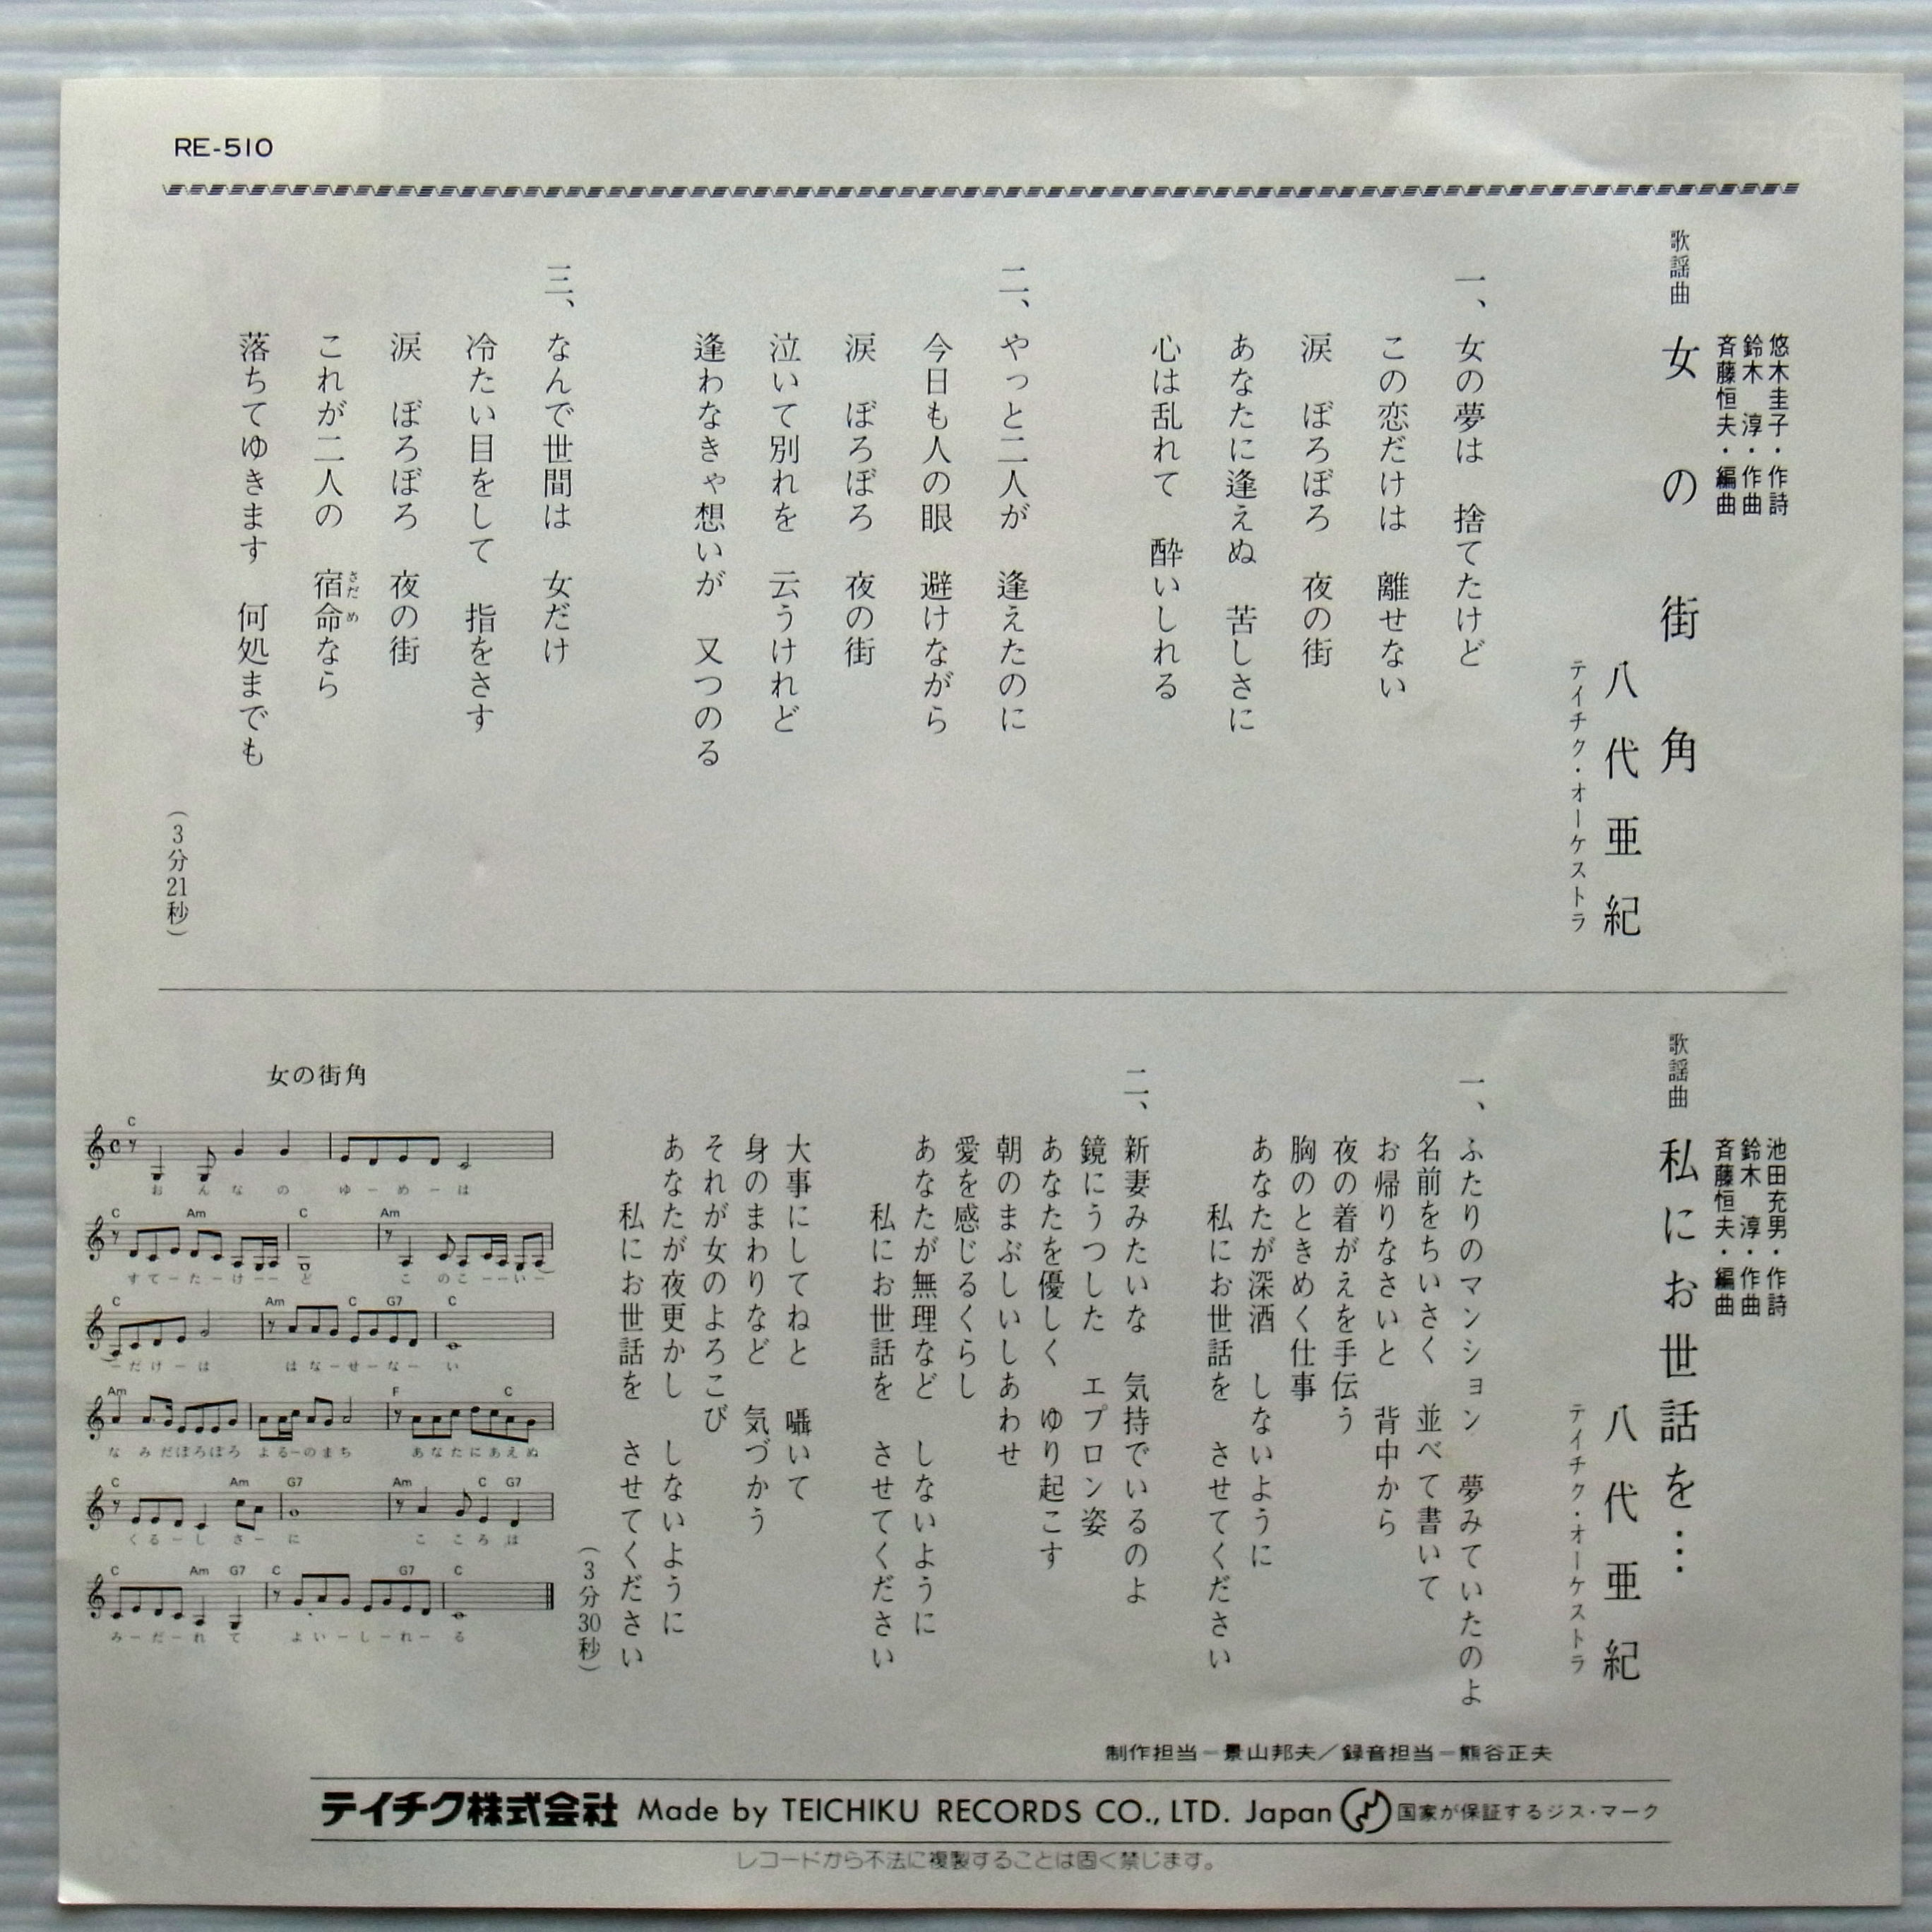 RE-510
悠木圭子・作詩
鈴木 淳・作曲
斉藤恒夫・編曲
歌謡曲 女の街角
八代亜紀
テイチク・オーケストラ
一、女の夢は 捨てたけど
この恋だけは 離せない
涙 ぼろぼろ 夜の街
あなたに逢えぬ 苦しさに
心は乱れて 酔いしれる
二、やっと二人が 逢えたのに
今日も人の眼 避けながら
涙 ぼろぼろ 夜の街
泣いて別れを 云うけれど
逢わなきゃ想いが 又つのる
三、なんで世間は 女だけ
冷たい目をして 指をさす
涙 ぼろぼろ 夜の街
これが二人の 宿命なら
さだめ
落ちてゆきます 何処までも
(3分21秒)
池田充男・作詩
鈴木 淳・作曲
斉藤恒夫・編曲
歌謡曲 私にお世話を…
八代亜紀
テイチク・オーケストラ
一、ふたりのマンション 夢みていたのよ
名前をちいさく 並べて書いて
お帰りなさいと 背中から
夜の着がえを手伝う
胸のときめく仕事
あなたが深酒 しないように
私にお世話を させてください
二、新妻みたいな 気持でいるのよ
鏡にうつした エプロン姿
あなたを優しく ゆり起こす
朝のまぶしいしあわせ
愛を感じるくらし
あなたが無理など しないように
私にお世話を させてください
大事にしてねと 囁いて
身のまわりなど 気づかう
それが女のよろこび
あなたが夜更かし しないように
私にお世話を させてください
(3分30秒)
女の街角
C
おんなの ゆーめーは
C Am C Am
すてーたーけーーど こ のこーーいー
C Am C G7 C
ーだけーは はなーせーなーい
Am F C
な みだぼろぼろ よるーのまち あなたにあえぬ
C Am G7 Am C G7
くるーし さーに こ ころは
C Am G7 C G7 C
みーだーれ て よいーしーれーる
制作担当―景山邦夫/録音担当―熊谷正夫
テイチク株式会社 Made by TEICHIKU RECORDS CO., LTD. Japan 国家が保証するジス・マーク
レコードから不法に複製することは固く禁じます。